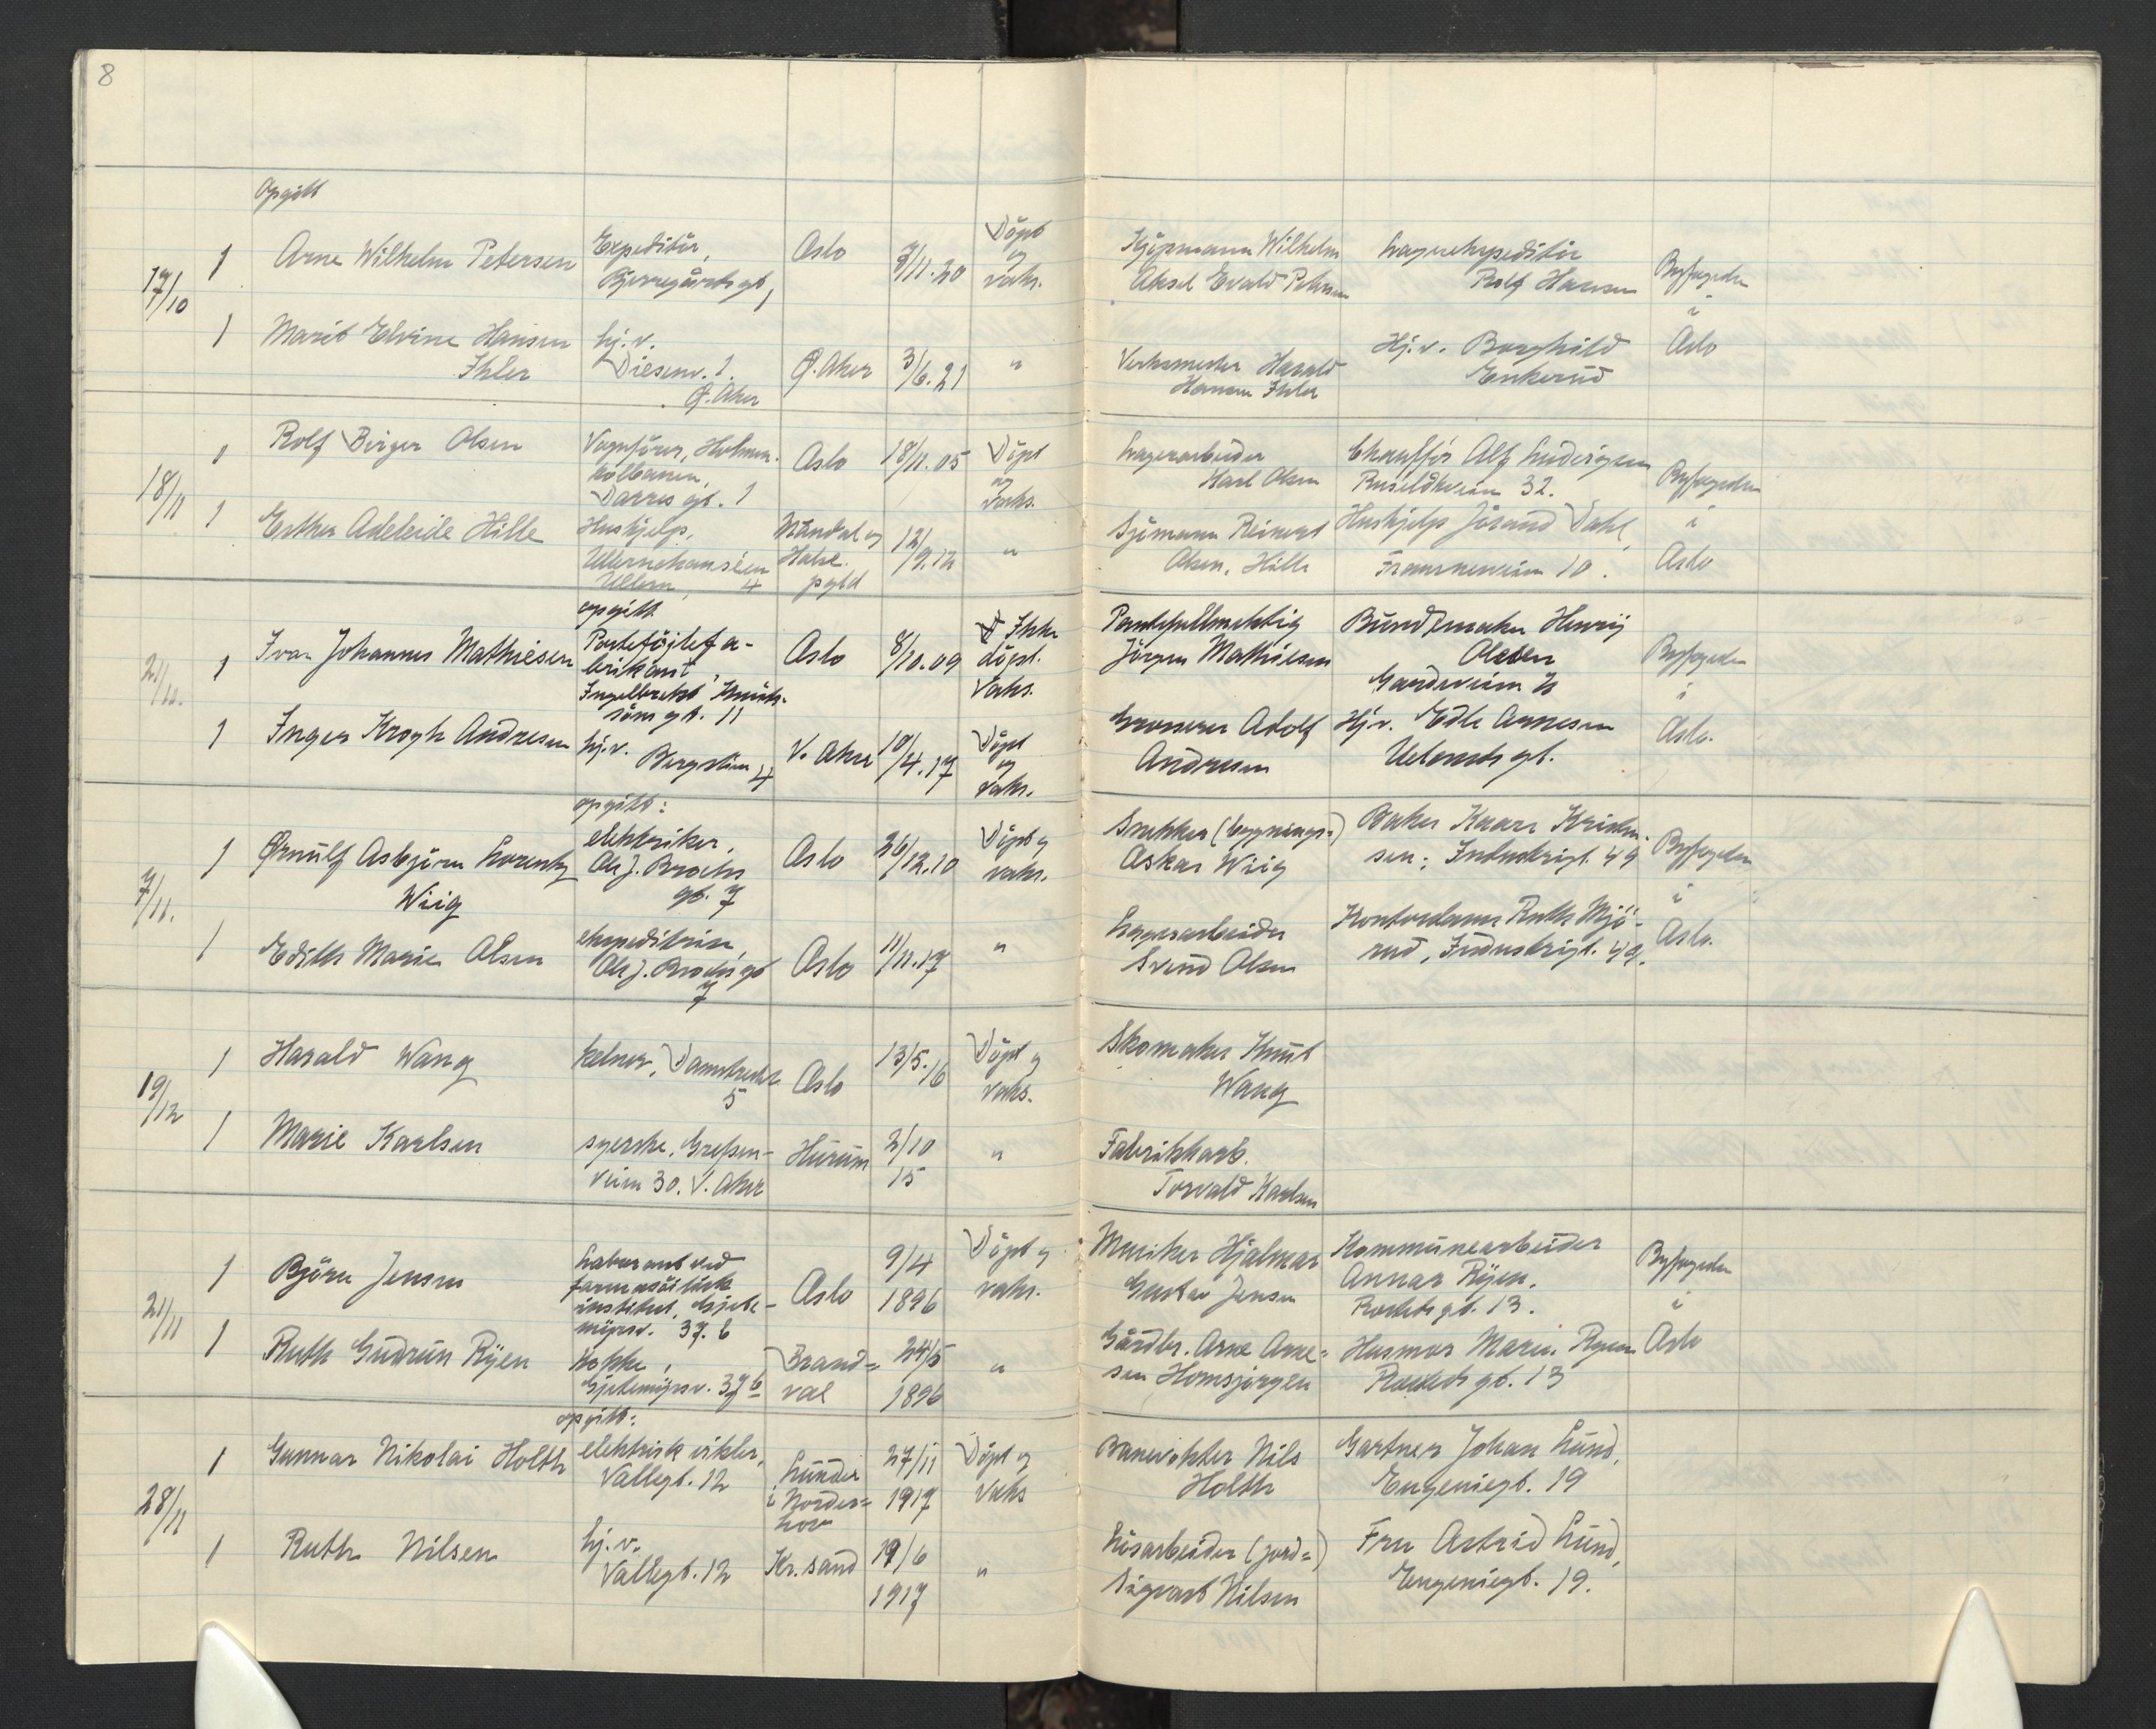 8
Opgitt
17/10
1 Arne Wilhelm Petersen
Expeditør,
Bjerregårdsgt,
Oslo
7/11.20
Döpt
og
vaks.
Kjöpmann Wilhelm
Aksel Evald Petersen
Lagerekspeditör
Rolf Hansen
Byfogeden
i
Oslo
1 Marit Elvine Hansen
Ihler
hj. v.
Diesenv. 1.
Ø. Aker
Ø. Aker
3/6.21
"
Verksmester Harald
Hansen Ihler
Hj. v. Borghild
Enkerud
18/11
1 Rolf Birger Olsen
Vognförer, Holmen-
kolbanen,
Darres gt. 1
Oslo
18/11.05
Döpt
og
vaks.
Lagerarbeider
Karl Olsen
Chaufför Alf Ludvigsen
Ruselökveien 32.
Byfogeden
i
Oslo
1 Esther Adeleide Hille
Hushjelp,
Ullernchauséen
Ullern, 4
Mandal og
Halse
pgld
12/9.12
"
Sjömann Reinert
Olsen, Hille
Hushjelp Jörand Dahl,
Framnesveien 10.
21/12.
opgitt
1 Ivar Johannes Mathiesen
Porteföjlefa-
brikant,
Ingelbrecht Knuds-
söns gt. 11
Oslo
8/10.09
Ikke
döpt.
Vaks.
Pantefullmektig
Jörgen Mathiesen
Bundtmaker Henrij
Olsen
Byfogeden
i
Oslo.
1 Inger Krogh Andresen
hj. v.
Bergslien 4
V. Aker
10/4.17
Döpt
og
vaks.
Grosserer Adolf
Andresen
Hj. v. Edle Arnesen
Uelandsgt.
7/11.
opgitt:
1 Ørnulf Asbjörn Lorentz
Wiig
elektriker,
Ole J. Brochs
gt. 7
Oslo
26/12.10
Döpt og
vaks.
Snekker (bygnings-)
Askar Wiig
Baker Kaare Kristen-
sen; Industrigt. 49
Byfogeden
i
Oslo.
1 Edith Marie Olsen
ekspeditrise,
Ole J. Brochs gt
7
Oslo
11/11.17
"
Lagerarbeider
Svend Olsen
Kontordame Ruth Mjö-
rud, Industrigt. 49.
19/12
1 Harald Wang
kelner, Damstredet
5
Oslo
13/5.16
Döpt og
vaks.
Skomaker Knut
Wang
1 Marie Karlsen
syerske, Grefsen-
veien 30. V. Aker
Hurum
2/10
15
"
Fabrikkarb.
Torvald Karlsen
21/11
1 Björn Jensen
Laborant ved
farmasöitisk
institut, Gjete-
myrsv. 37. b
Oslo
9/4
1896
Döpt og
vaks.
Musiker Hjalmar
Gustav Jensen
Kommunearbeider
Annar Ryen,
gt. 13.
Byfogeden
i
Oslo
1 Ruth Gudrun Ryen
Kokke,
Gjetemyrsv. 37 b
Brand=
val
24/5
1896
"
Gårdbr. Arne Arne=
sen Homsjörgen
Husmor Marie Ryen
gt. 13
28/11
opgitt:
1 Gunnar Nikolai Holth
elektrisk vikler,
Vallegt. 12
Lunder
i Norder=
hov
27/11
1917
Döpt og
Vaks
Banevokter Nils
Holth
Gartner Johan Lund,
Eugeniegt. 19
1 Ruth Nilsen
hj. v.
Vallegt. 12
Kr. sand
19/6
1917
"
Lösarbeider (jord=)
Sigvart Nilsen
Fru Astrid Lund,
Eugeniegt. 19.